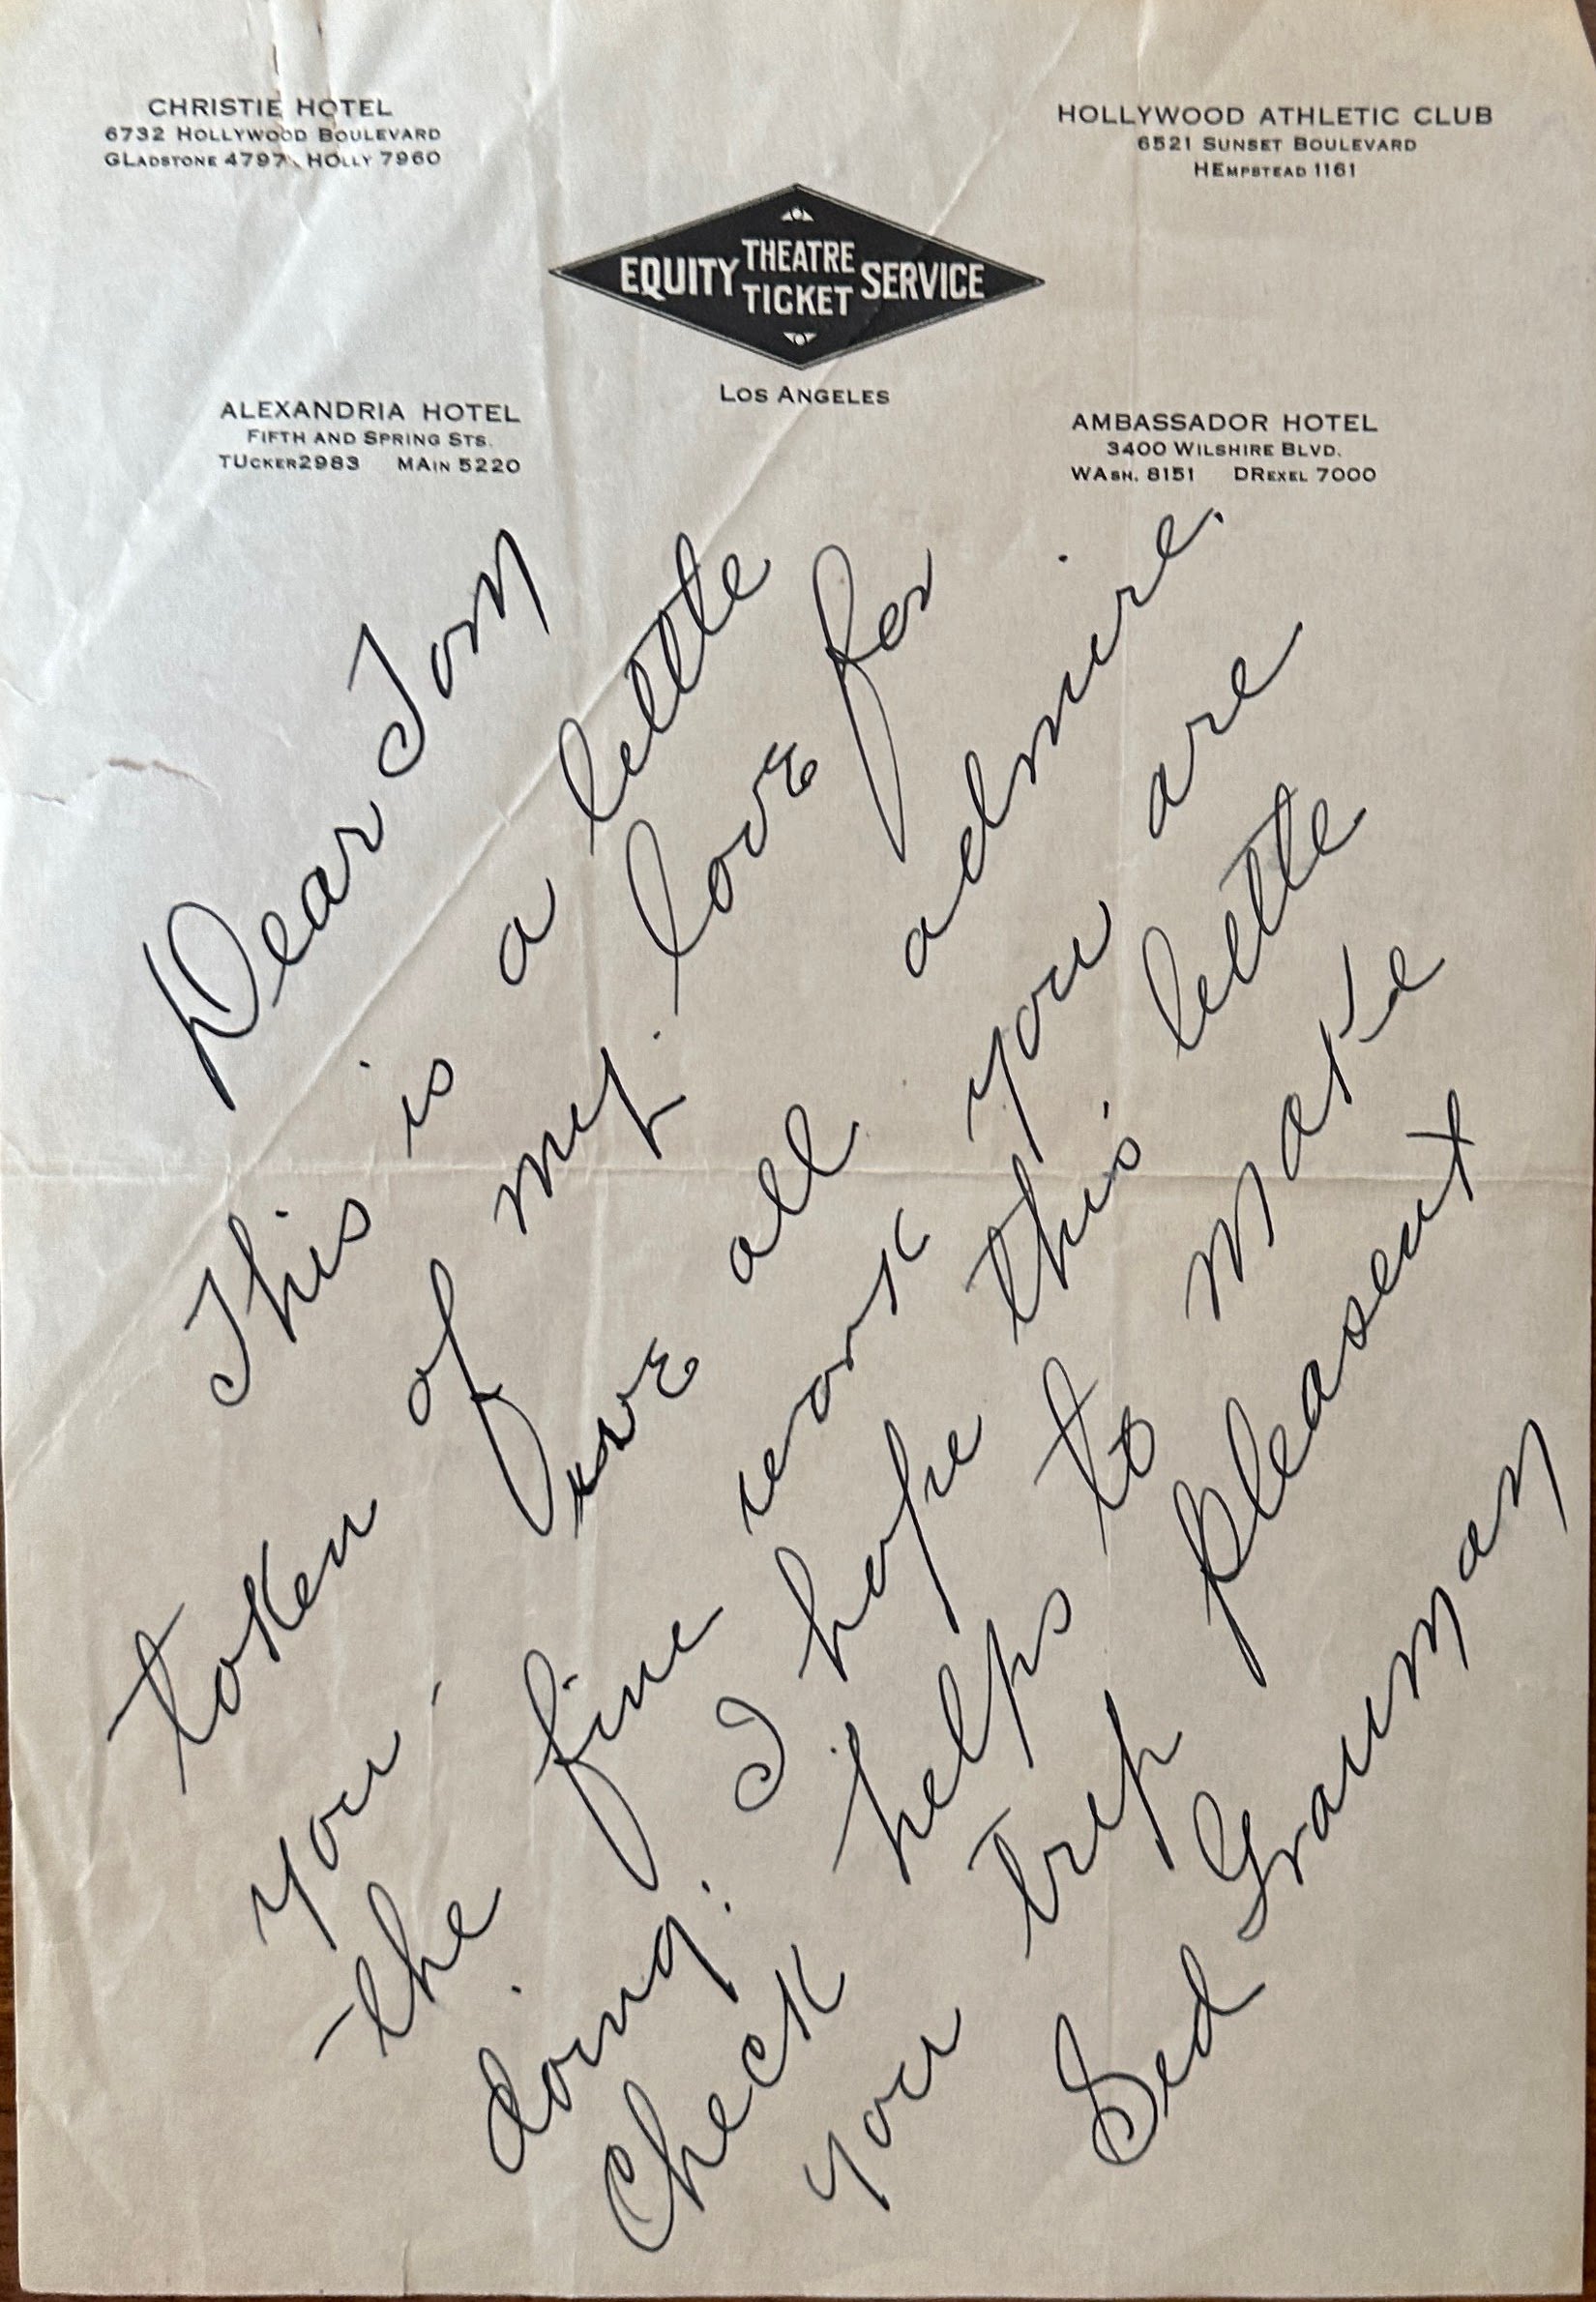 CHRISTIE HOTEL
6732 HOLLYWOOD BOULEVARD
GLADSTONE 4797 HOLLY 7960
HOLLYWOOD ATHLETIC CLUB
6521 SUNSET BOULEVARD
HEMPSTEAD 1161
EQUITY THEATRE TICKET SERVICE
LOS ANGELES
ALEXANDRIA HOTEL
FIFTH AND SPRING STS.
TUCKER2983 MAIN 5220
AMBASSADOR HOTEL
3400 WILSHIRE BLVD.
WASH. 8151 DREXEL 7000
Dear Tom
This is a little
token of my love for
you. we all admire.
the fine work you are
doing. I hope this little
check helps to make
you trip pleasent
Sid Grauman